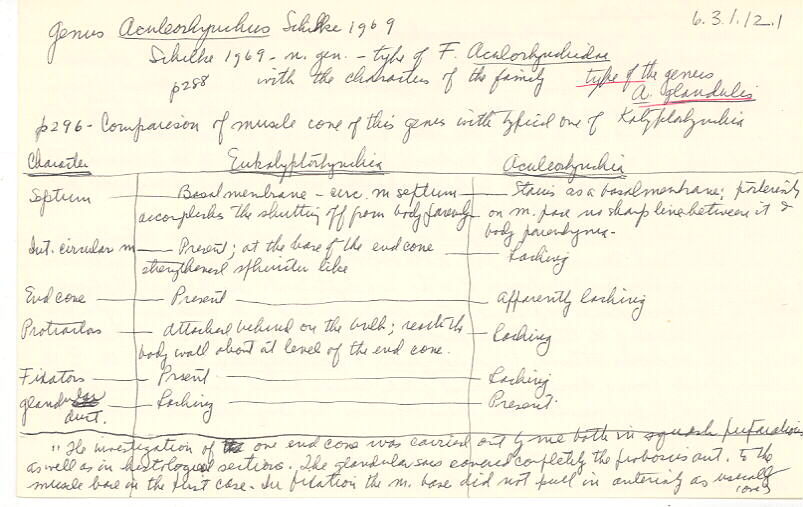 6.3.1.12.1
Genus Aculeorhynchus Schilke 1969
Schilke 1969 - n. gen. - type of F. Aculorhynchidae
p288 with the characters of the family type of the genus
A. glandulis
p296 - Comparison of muscle cone of this genus with typical one of Kalyptorhynchia
Character Eukalyptorhynchia Aculeorhynchia
Septum - Basal membrane - circ. m septum - Starts as a basalmembrane; posteriorly
accomplishes the shutting off from body parench on m. pare no sharp line between it &
body parenchyma.
Int. circular m - Present; at the base of the end cone - Lacking
strengthened sphincter like
End cone - Present - apparently lacking
Protractors - attached behind on the bulb; reach the - Lacking
body wall about at level of the end cone.
Fixators - Present - Lacking
glandular - Lacking - Present
duct.
"The investigation of one end cone was carried out by me both in squash preparations
as well as in histological sections. The glandular sacs covered completely the proboscis ant. to the
muscle base in the first case. In fixation the m. base did not pull in anteriorly as usually